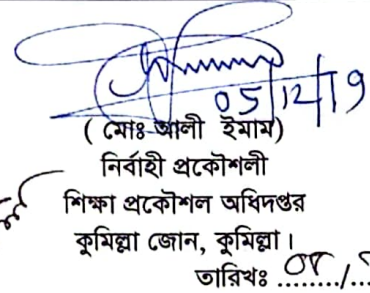 05/12/19
( মোঃ আলী ইমাম)
নির্বাহী প্রকৌশলী
শিক্ষা প্রকৌশল অধিদপ্তর
কুমিল্লা জোন, কুমিল্লা।
তারিখঃ ০৮/